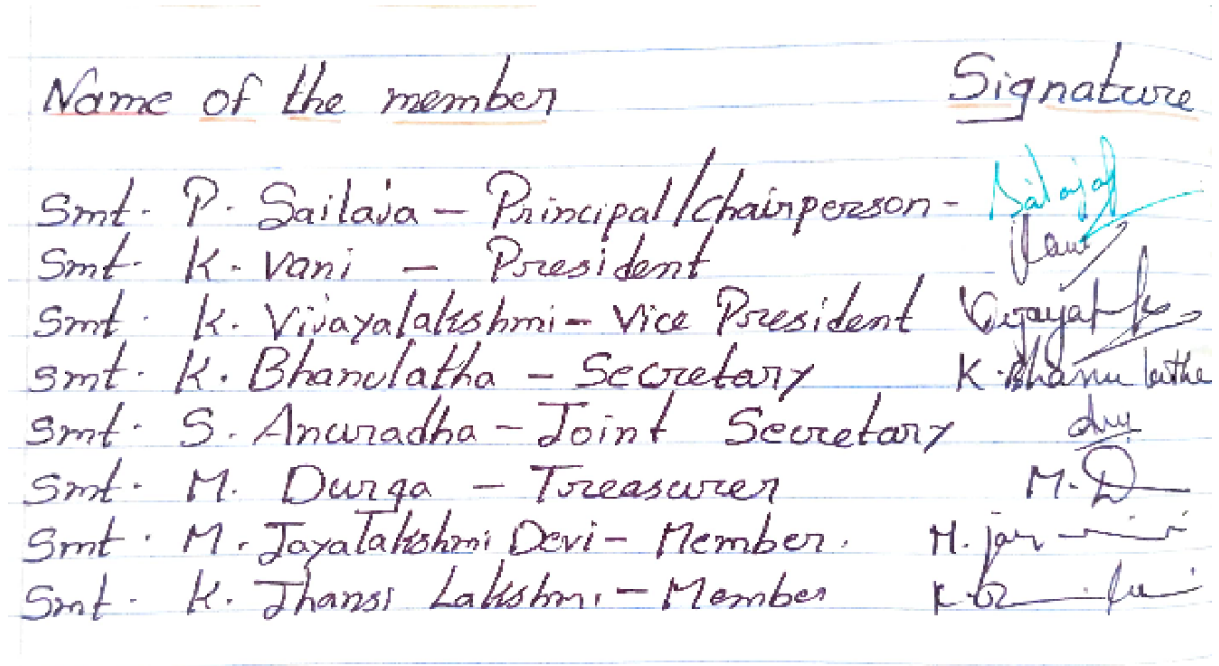 Name of the member Signature
Smt. P. Sailaja - Principal/chairperson - Sailaja
Smt. K. Vani - President Vani
Smt. K. Vijayalakshmi - Vice President
Smt. K. Bhanulatha - Secretary K. Bhanu latha
Smt. S. Anuradha - Joint Secretary
Smt. M. Durga - Treasurer M. D
Smt. M. Jayalakshmi Devi - Member. M. Jay
Smt. K. Jhansi Lakshmi - Member K.